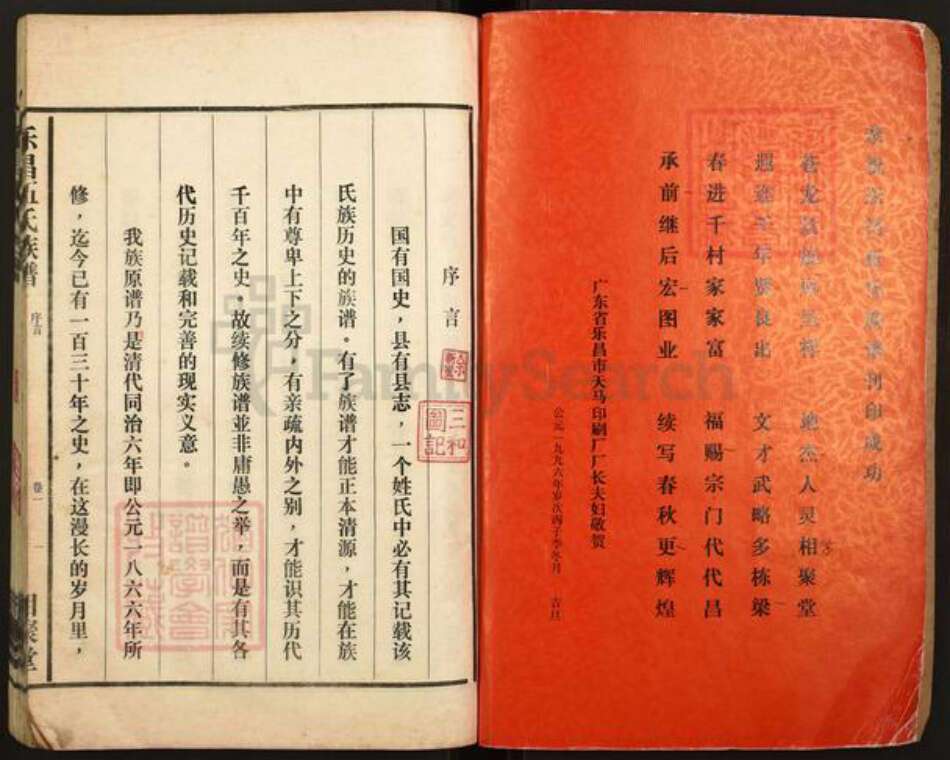 成功
相聚堂
文才武略多栋梁
春进千村家家富 福赐宗门代代昌
承前继后宏图业 续写春秋更辉煌
广东省乐昌市天马印刷厂厂长夫妇敬贺
公元一九九六年岁次丙子季冬月 吉旦
序言
国有国史，县有县志，一个姓氏中必有其记载该
氏族历史的族谱。有了族谱才能正本清源，才能在族
中有尊卑上下之分，有亲疏内外之别，才能识其历代
千百年之史。故续修族谱並非庸愚之举，而是有其各
代历史记载和完善的现实义意。
我族原谱乃是清代同治六年即公元一八六六年所
修，迄今已有一百三十年之史，在这漫长的岁月里，
乐昌伍氏族谱 序言 卷一 一 相聚堂
三和
圖記
FamilySearch